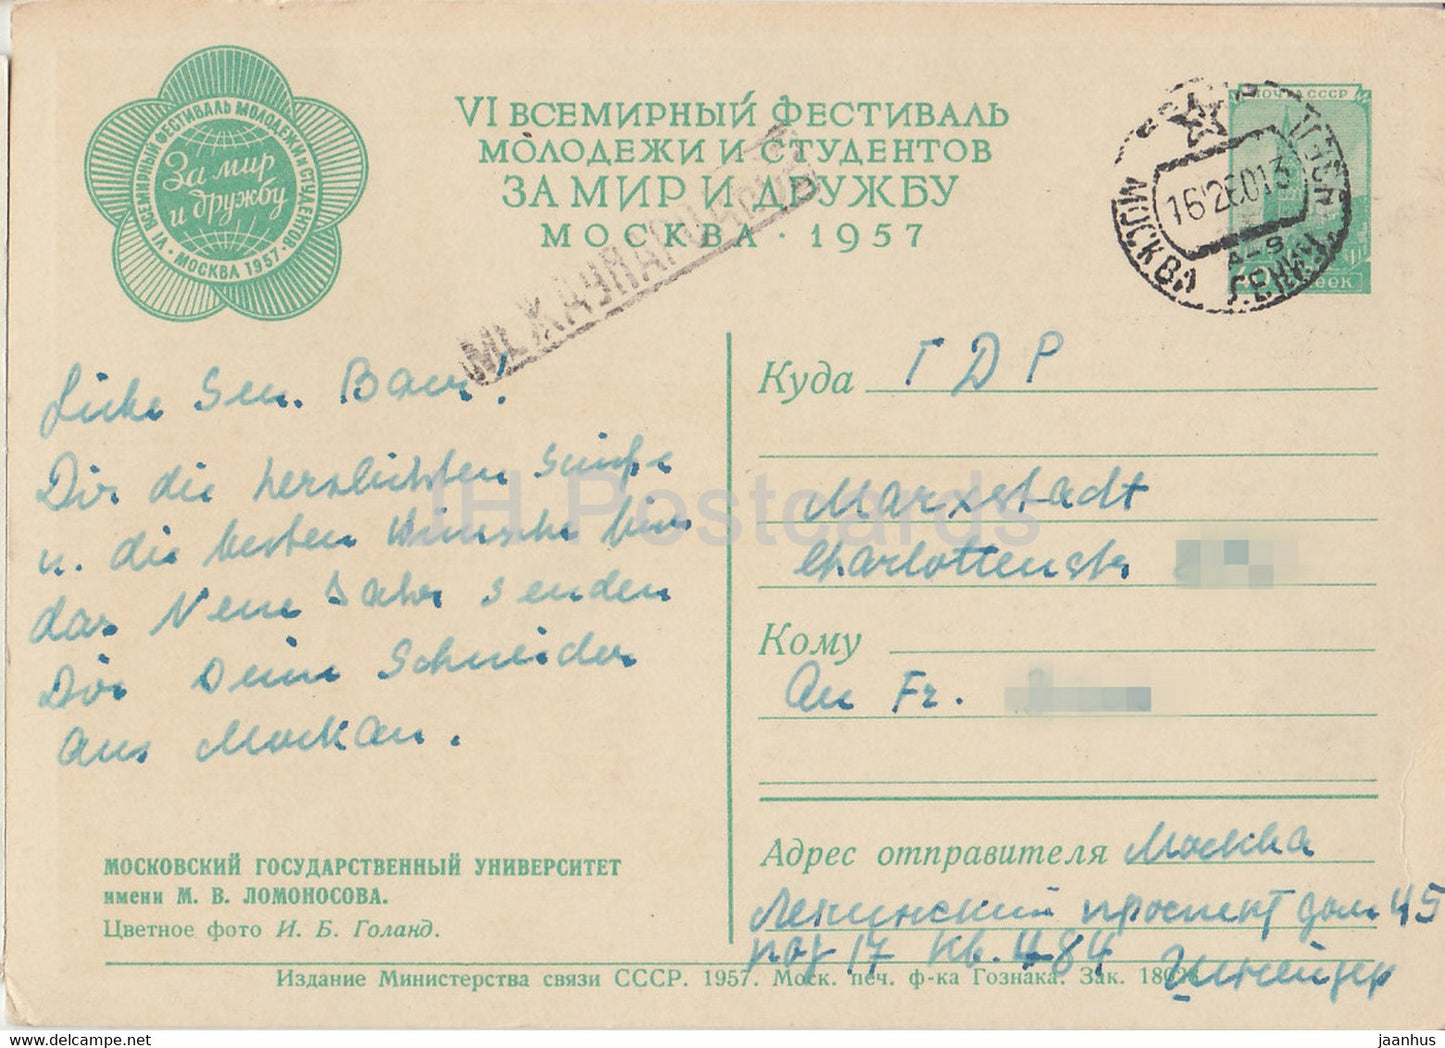 VI ВСЕМИРНЫЙ ФЕСТИВАЛЬ МОЛОДЕЖИ И СТУДЕНТОВ
За мир
и дружбу
• МОСКВА 1957 •
VI ВСЕМИРНЫЙ ФЕСТИВАЛЬ
МОЛОДЕЖИ И СТУДЕНТОВ
ЗА МИР И ДРУЖБУ
МОСКВА · 1957
МЕЖДУНАРОДНОЕ
ПОЧТА СССР
МОСКВА
Liebe Bauer!
Dir die herzlichsten
u. die besten Wünsche
das Neue Jahr senden
Dir Deine Schneider
aus Moskau.
Куда ГДР
Marxstadt
Charlottenstr
Кому
An Fr.
Адрес отправителя Москва
Ленинский проспект дом 45
под 17 кв. 484 Шнейдер
МОСКОВСКИЙ ГОСУДАРСТВЕННЫЙ УНИВЕРСИТЕТ
имени М. В. ЛОМОНОСОВА.
Цветное фото И. Б. Голанд.
Издание Министерства связи СССР. 1957. Моск. печ. ф-ка Гознака. Зак.
IH Postcards
www.delcampe.net
jaanhus